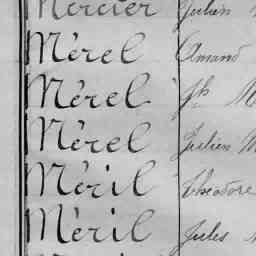 Mercier Julien
Mérel Amand
Mérel Jh M
Mérel Julien M
Méril Théodore
Méril Jules